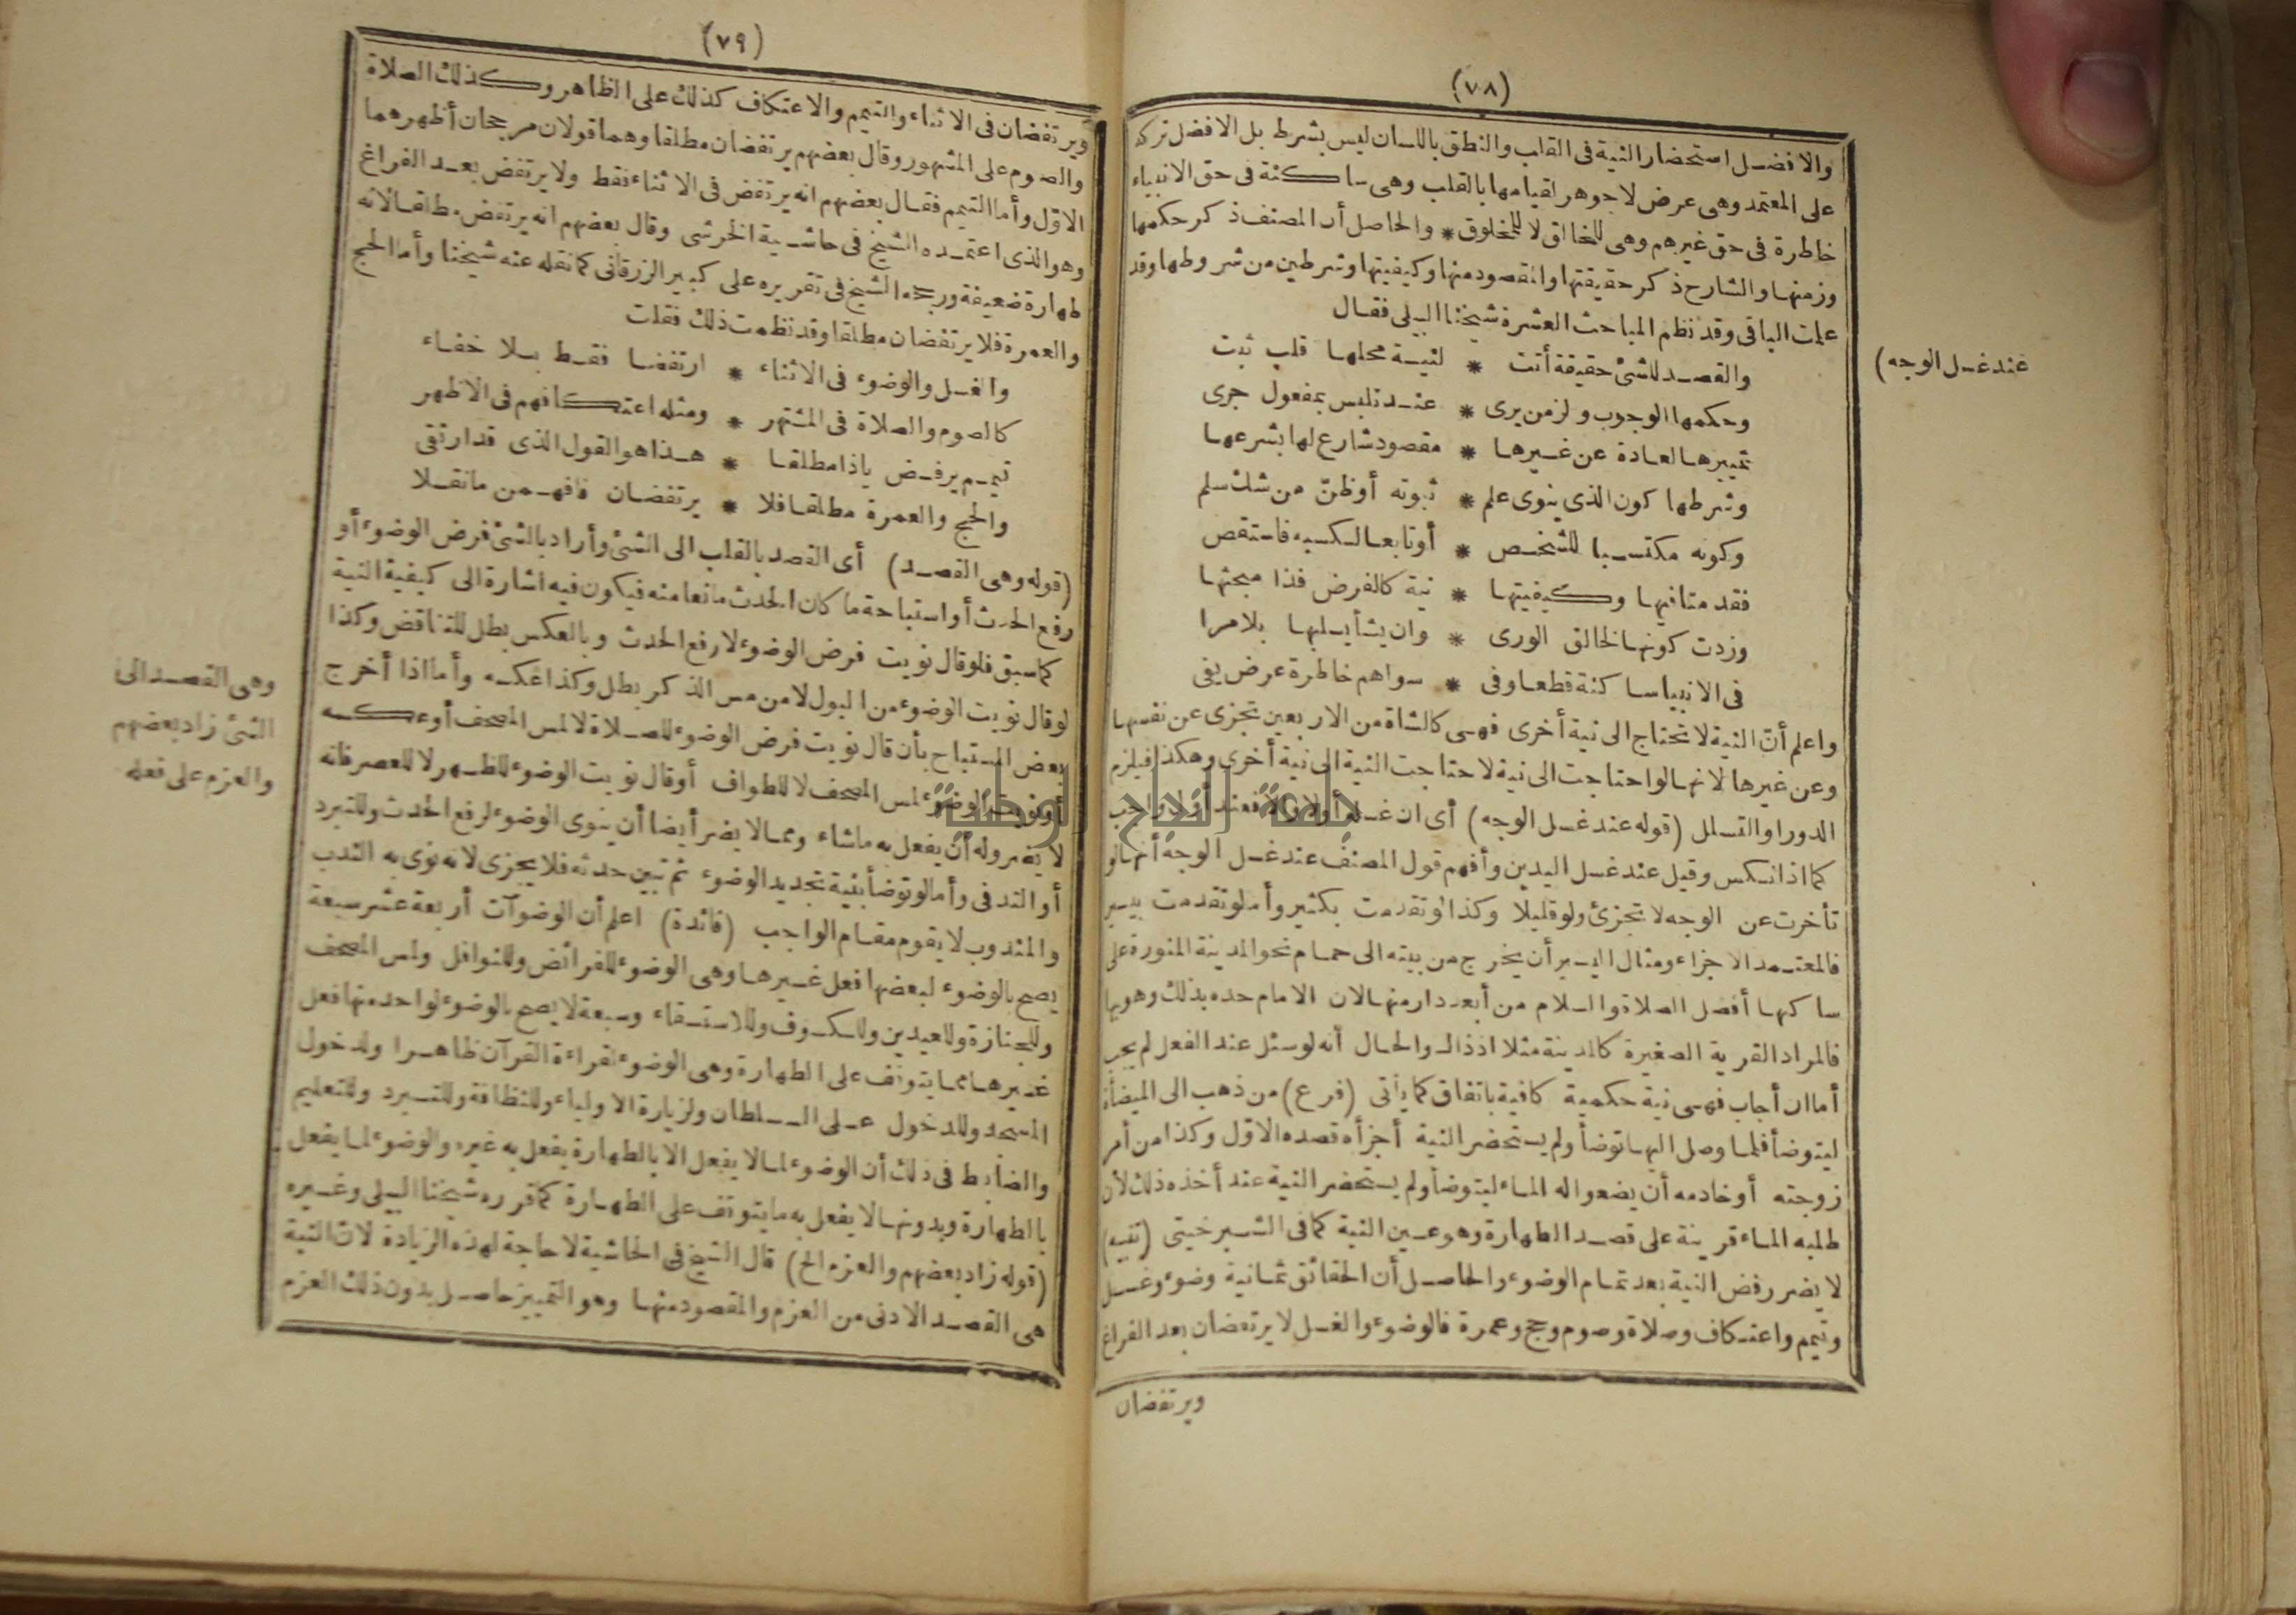 (٧٨)
والافضل استحضار النية فى القلب والنطق باللسان ليس بشرط بل الافضل تركه
على المعتمد وهى عرض لا جوهر لقيامها بالقلب وهى ساكنة فى حق الانبياء
خاطرة فى حق غيرهم وهى للخالق لا للمخلوق * والحاصل أن المصنف ذكر حكمها
وزمنها والشارح ذكر حقيقتها والمقصود منها وكيفيتها وشرطين من شروطها وقد
علمت الباقى وقد نظم المباحث العشرة شيخنا البيلى فقال
والقصد للشئ حقيقة أتت * لنية محلها قلب ثبت
وحكمها الوجوب والزمن يرى * عند تلبس بمفعول جرى
تمييزها لعادة عن غيرها * مقصود شارع لها بشرعها
وشرطها كون الذى ينوى علم * ثبوته أوظنّ من شك سلم
وكونه مكتسبا للشخص * أو تابعا لكسبه فاستقص
فقد منافيها وكيفيتها * نية كالفرض فذا مبحثها
وزدت كونها لخالق الورى * وان يشأ يسلبها بلا مرا
فى الانبيا ساكنة قطعا وفى * سواهم خاطرة عرض يفى
واعلم أنّ النية لا تحتاج الى نية أخرى فهى كالشاة من الاربعين تجزى عن نفسها
وعن غيرها لانها لو احتاجت الى نية لاحتاجت النية الى نية أخرى وهكذا فيلزم
الدور أو التسلسل (قوله عند غسل الوجه) أى ان غسله أولا والا فعند أول واجب
كما اذا نكس وقيل عند غسل اليدين وأفهم قول المصنف عند غسل الوجه أنها لو
تأخرت عن الوجه لا تجزئ ولو قليلا وكذا لو تقدمت بكثير وأما لو تقدمت بيسير
فالمعتمد الاجزاء ومثال اليسير أن يخرج من بيته الى حمام نحو المدينة المنورة على
ساكنها أفضل الصلاة والسلام من أبعد دار منها لان الامام حده بذلك وهو بها
فالمراد القرية الصغيرة كالمدينة مثلا اذ ذاك والحال أنه لو سئل عند الفعل لم يجب
أما ان أجاب فهى نية حكمية كافية باتفاق كما يأتى (فرع) من ذهب الى الميضأة
ليتوضأ فلما وصل اليها توضأ ولم يستحضر النية أجزأه قصده الاوّل وكذا من أمر
زوجته أو خادمه أن يضعوا له الماء ليتوضأ ولم يستحضر النية عند أخذه ذلك لان
طلبه الماء قرينة على قصد الطهارة وهو عين النية كما فى الشبرخيتى (تنبيه)
لا يضر رفض النية بعد تمام الوضوء والحاصل أن الحقائق ثمانية وضوء وغسل
وتيمم واعتكاف وصلاة وصوم وحج وعمرة فالوضوء والغسل لا يرتفضان بعد الفراغ
ويرتفضان
عند غسل الوجه)
(٧٩)
ويرتفضان فى الاثناء والتيمم والاعتكاف كذلك على الظاهر وكذلك الصلاة
والصوم على المشهور وقال بعضهم يرتفضان مطلقا وهما قولان مرجحان أظهرهما
الاوّل وأما التيمم فقال بعضهم انه يرتفض فى الاثناء فقط ولا يرتفض بعد الفراغ
وهو الذى اعتمده الشيخ فى حاشية الخرشى وقال بعضهم انه يرتفض مطلقا لانه
طهارة ضعيفة ورجحه الشيخ فى تقريره على كبير الزرقانى كما نقله عنه شيخنا وأما الحج
والعمرة فلا يرتفضان مطلقا وقد نظمت ذلك فقلت
والغسل والوضوء فى الاثناء * ارتفضا فقط بلا خفاء
كالصوم والصلاة فى المشتهر * ومثله اعتكافهم فى الاظهر
تيمم يرفض ياذا مطلقا * هذا هو القول الذى قد ارتقى
والحج والعمرة مطلقا فلا * يرتفضان فافهمن ما نقلا
(قوله وهى القصد) أى القصد بالقلب الى الشئ وأراد بالشئ فرض الوضوء أو
رفع الحدث أو استباحة ما كان الحدث مانعا منه فيكون فيه اشارة الى كيفية النية
كما سبق فلو قال نويت فرض الوضوء لا رفع الحدث وبالعكس بطل للتناقض وكذا
لو قال نويت الوضوء من البول لا من مس الذكر بطل وكذا عكسه وأما اذا أخرج
بعض المستباح بأن قال نويت فرض الوضوء للصلاة لا لمس المصحف أو عكسه
أو نويت الوضوء لمس المصحف لا للطواف أو قال نويت الوضوء للظهر لا للعصر فانه
لا يضر وله أن يفعل به ما شاء ومما لا يضر أيضا أن ينوى الوضوء لرفع الحدث وللتبرد
أو التدفى وأما لو توضأ بنية تجديد الوضوء ثم تبين حدثه فلا يجزى لانه نوى به الندب
والمندوب لا يقوم مقام الواجب (فائدة) اعلم أن الوضوآت أربعة عشر سبعة
يصح بالوضوء لبعضها فعل غيرها وهى الوضوء للفرائض وللنوافل ولمس المصحف
وللجنازة وللعيدين وللكسوف وللاستسقاء وسبعة لا يصح بالوضوء لواحد منها فعل
غيرها مما يتوقف على الطهارة وهى الوضوء لقراءة القرآن ظاهرا ولدخول
المسجد وللدخول على السلطان ولزيارة الاولياء وللنظافة وللتبرد وللتعليم
والضابط فى ذلك أن الوضوء لما لا يفعل الا بالطهارة يفعل به غيره والوضوء لما يفعل
بالطهارة وبدونها لا يفعل به ما يتوقف على الطهارة كما قرره شيخنا البيلى وغيره
(قوله زاد بعضهم والعزم الخ) قال الشيخ فى الحاشية لا حاجة لهذه الزيادة لان النية
هى القصد الادنى من العزم والمقصود منها وهو التمييز حاصل بدون ذلك العزم
وهى القصد الى
الشئ زاد بعضهم
والعزم على فعله
جامعة النجاح الوطنية